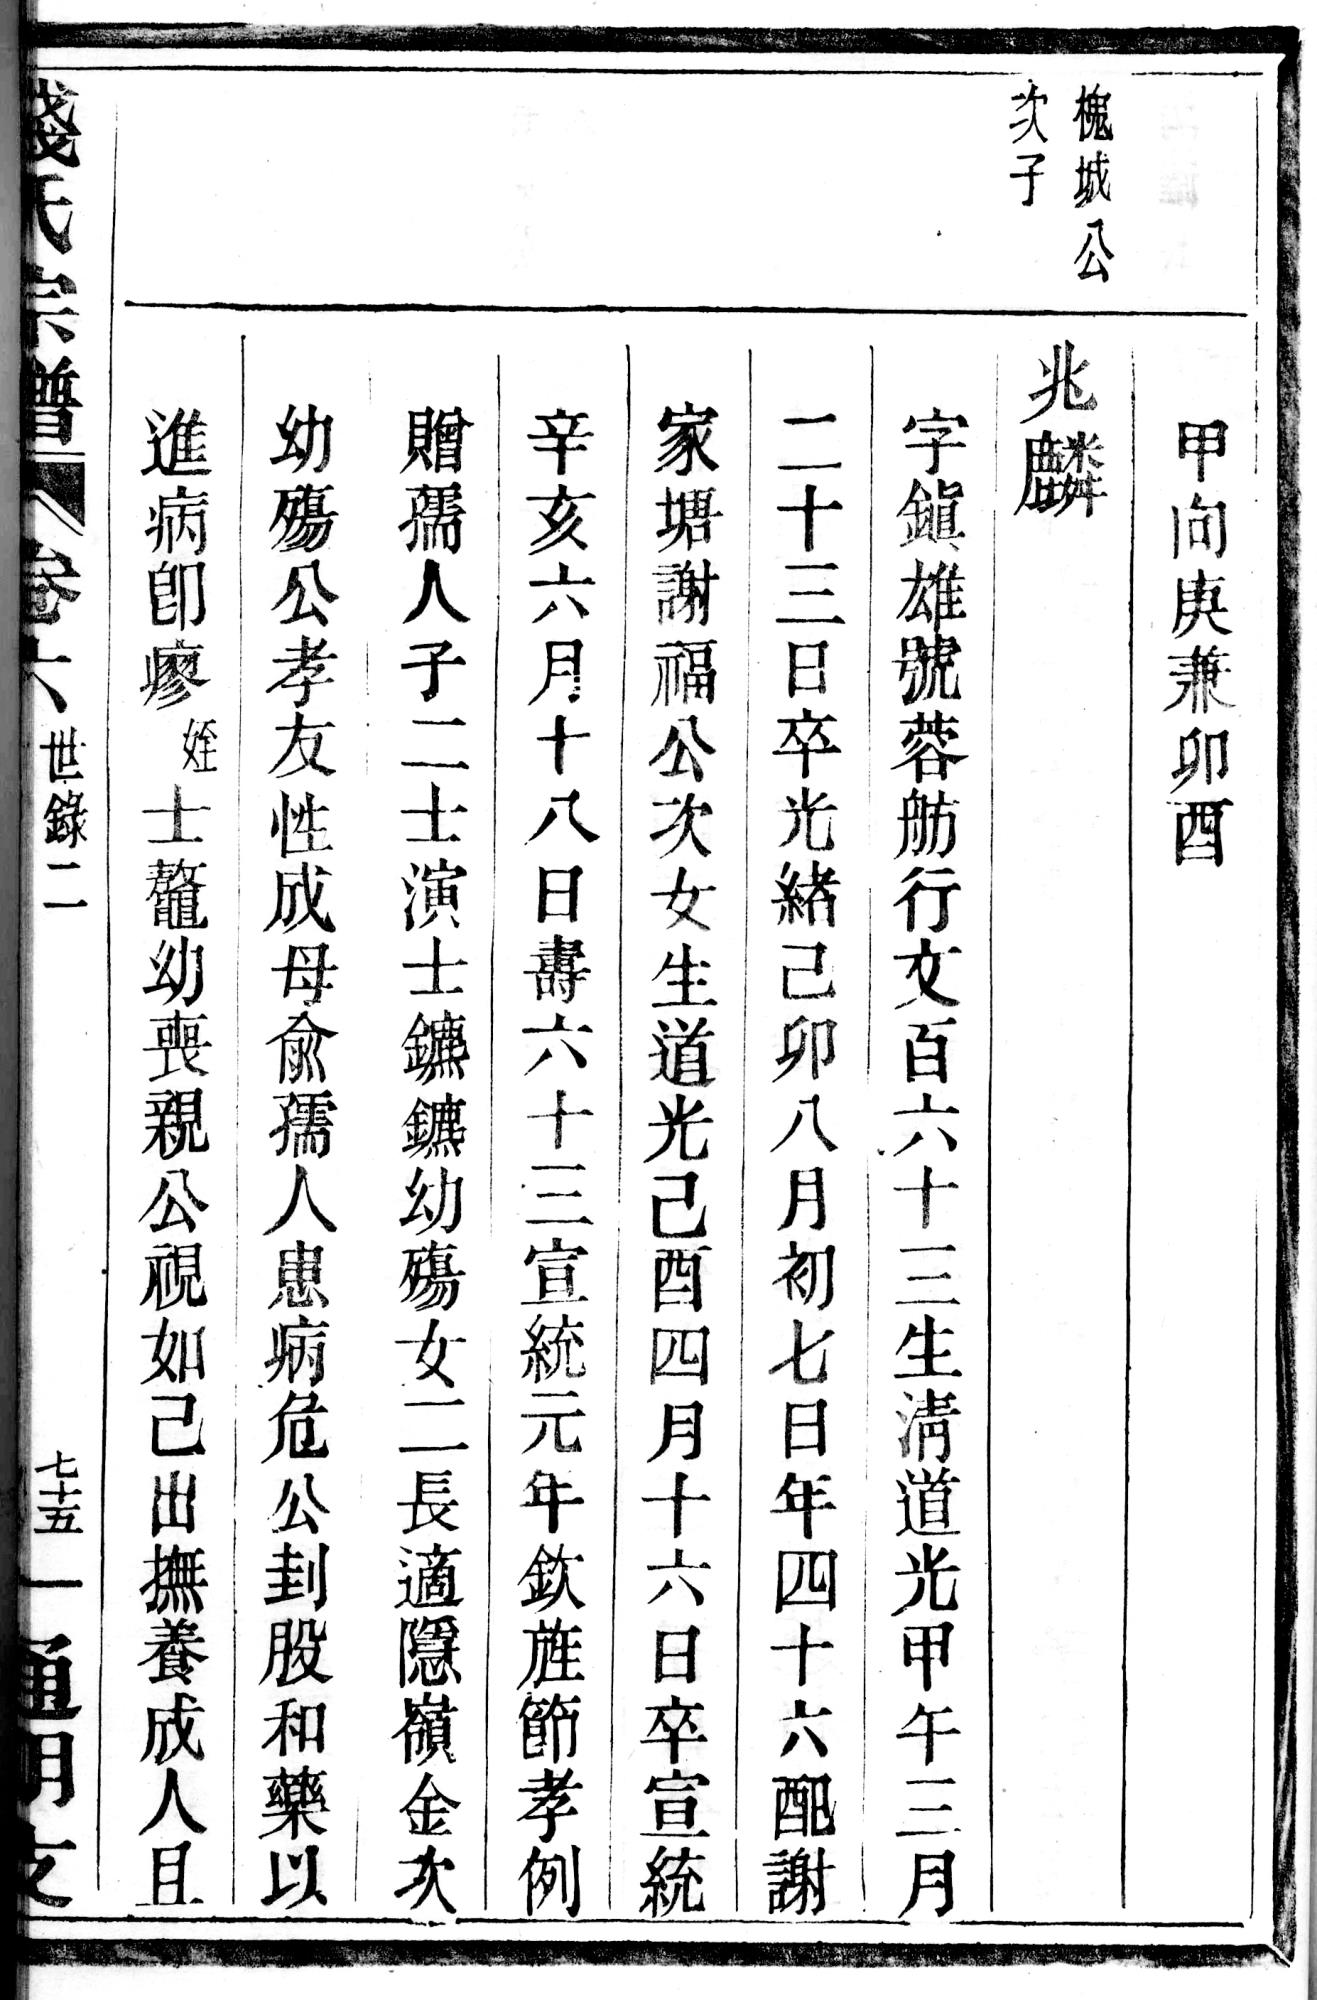 甲向庚兼卯酉
槐城公
次子
兆麟
字鎭雄號蓉舫行文百六十三生淸道光甲午三月
二十三日卒光緒己卯八月初七日年四十六配謝
家塘謝福公次女生道光己酉四月十六日卒宣統
辛亥六月十八日壽六十三宣統元年欽旌節孝例
贈孺人子二士演士鑣鑣幼殤女二長適隱嶺金次
幼殤公孝友性成母俞孺人患病危公刲股和藥以
進病卽瘳姪士鼇幼喪親公視如己出撫養成人且
錢氏宗譜
卷六
世錄二
七十五
通明支